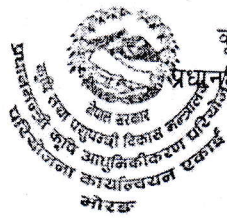 प्रधान
नेपाल सरकार
कृषि तथा पशुपन्छी विकास मन्त्रालय
प्रधानमन्त्री कृषि आधुनिकीकरण परियोजना
परियोजना कार्यान्वयन एकाई
मोरङ